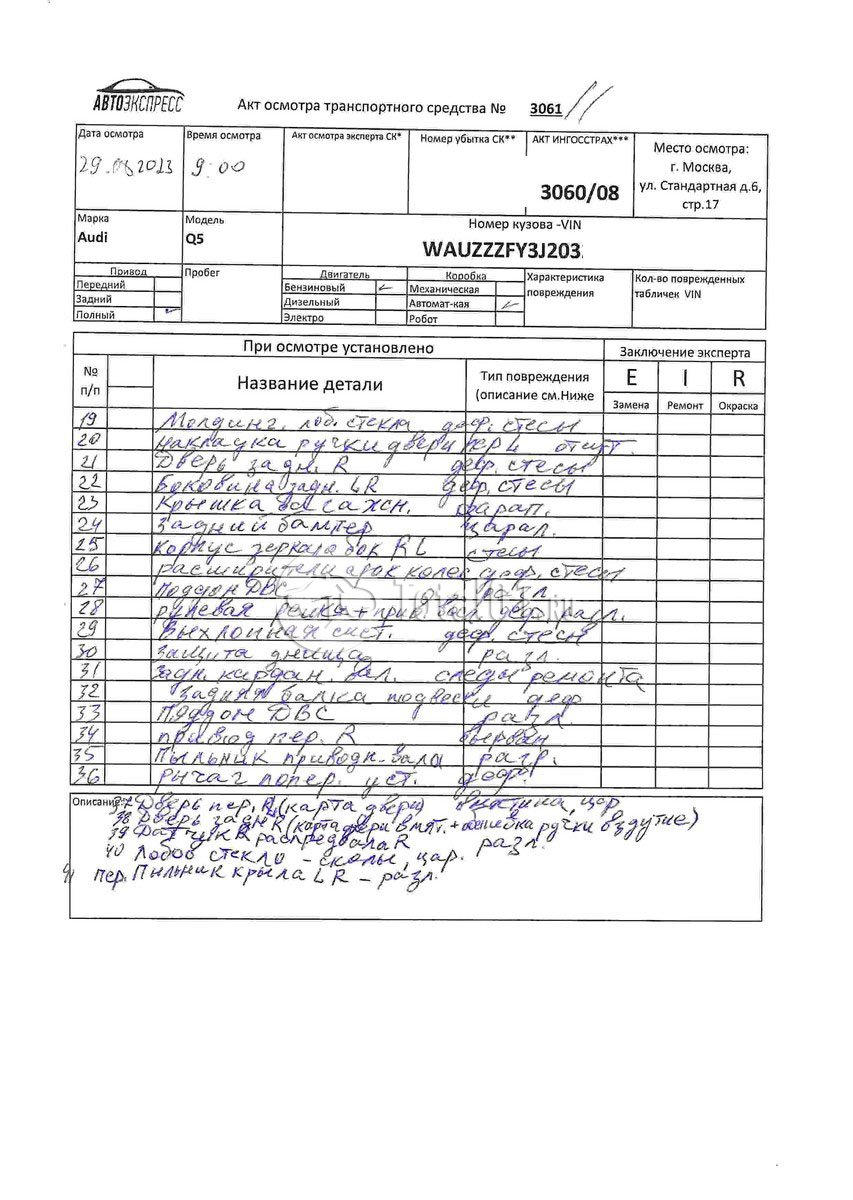 АВТОЭКСПРЕСС
Акт осмотра транспортного средства № 3061 //
Дата осмотра Время осмотра Акт осмотра эксперта СК* Номер убытка СК** АКТ ИНГОССТРАХ*** Место осмотра:
29.08.2023 9:00 г. Москва,
3060/08 ул. Стандартная д.6,
стр.17
Марка Модель Номер кузова -VIN
Audi Q5 WAUZZZFY3J203
Привод Пробег Двигатель Коробка Характеристика Кол-во поврежденных
Передний Бензиновый Механическая повреждения табличек VIN
Задний Дизельный Автомат-кая
Полный Электро Робот
При осмотре установлено Заключение эксперта
№ п/п Название детали Тип повреждения E I R
(описание см.Ниже Замена Ремонт Окраска
19 Молдинг. лоб. стекла деф. стесы
20 накладка ручки двери пер L отсут.
21 Дверь задн. R деф. стесы
22 Боковина задн. LR деф. стесы
23 Крышка багажн. царап.
24 Задний бампер царап.
25 корпус зеркала бок RL стесы
26 расширители арок колес деф. стесы
27 Подрон ДВС разл
28 рулевая рейка + привод деф разл.
29 Выхлопная сист. деф. стесы
30 защита днища разл.
31 Задн. кардан. вал. следы ремонта
32 Задняя балка подвески деф
33 Поддон ДВС разл
34 привод пер. R вырван
35 Пыльник приводн. вала разр.
36 рычаг попер. уст. деф.
Описание: 37 Дверь пер. R (карта двери) вмятина, цар
38 Дверь задн R (карта двери вмят. + обшивка ручки вздутие)
39 Датчик распредвала R разл.
40 Лобов стекло – сколы, цар.
41 пер. Пыльник крыла LR – разл.